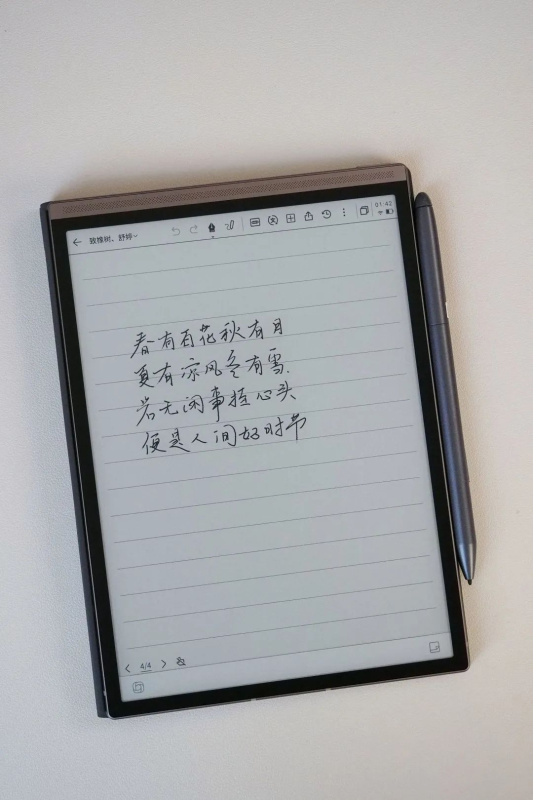 致橡树、舒婷
01:42
春有百花秋有月
夏有凉风冬有雪
若无闲事挂心头
便是人间好时节
4/4